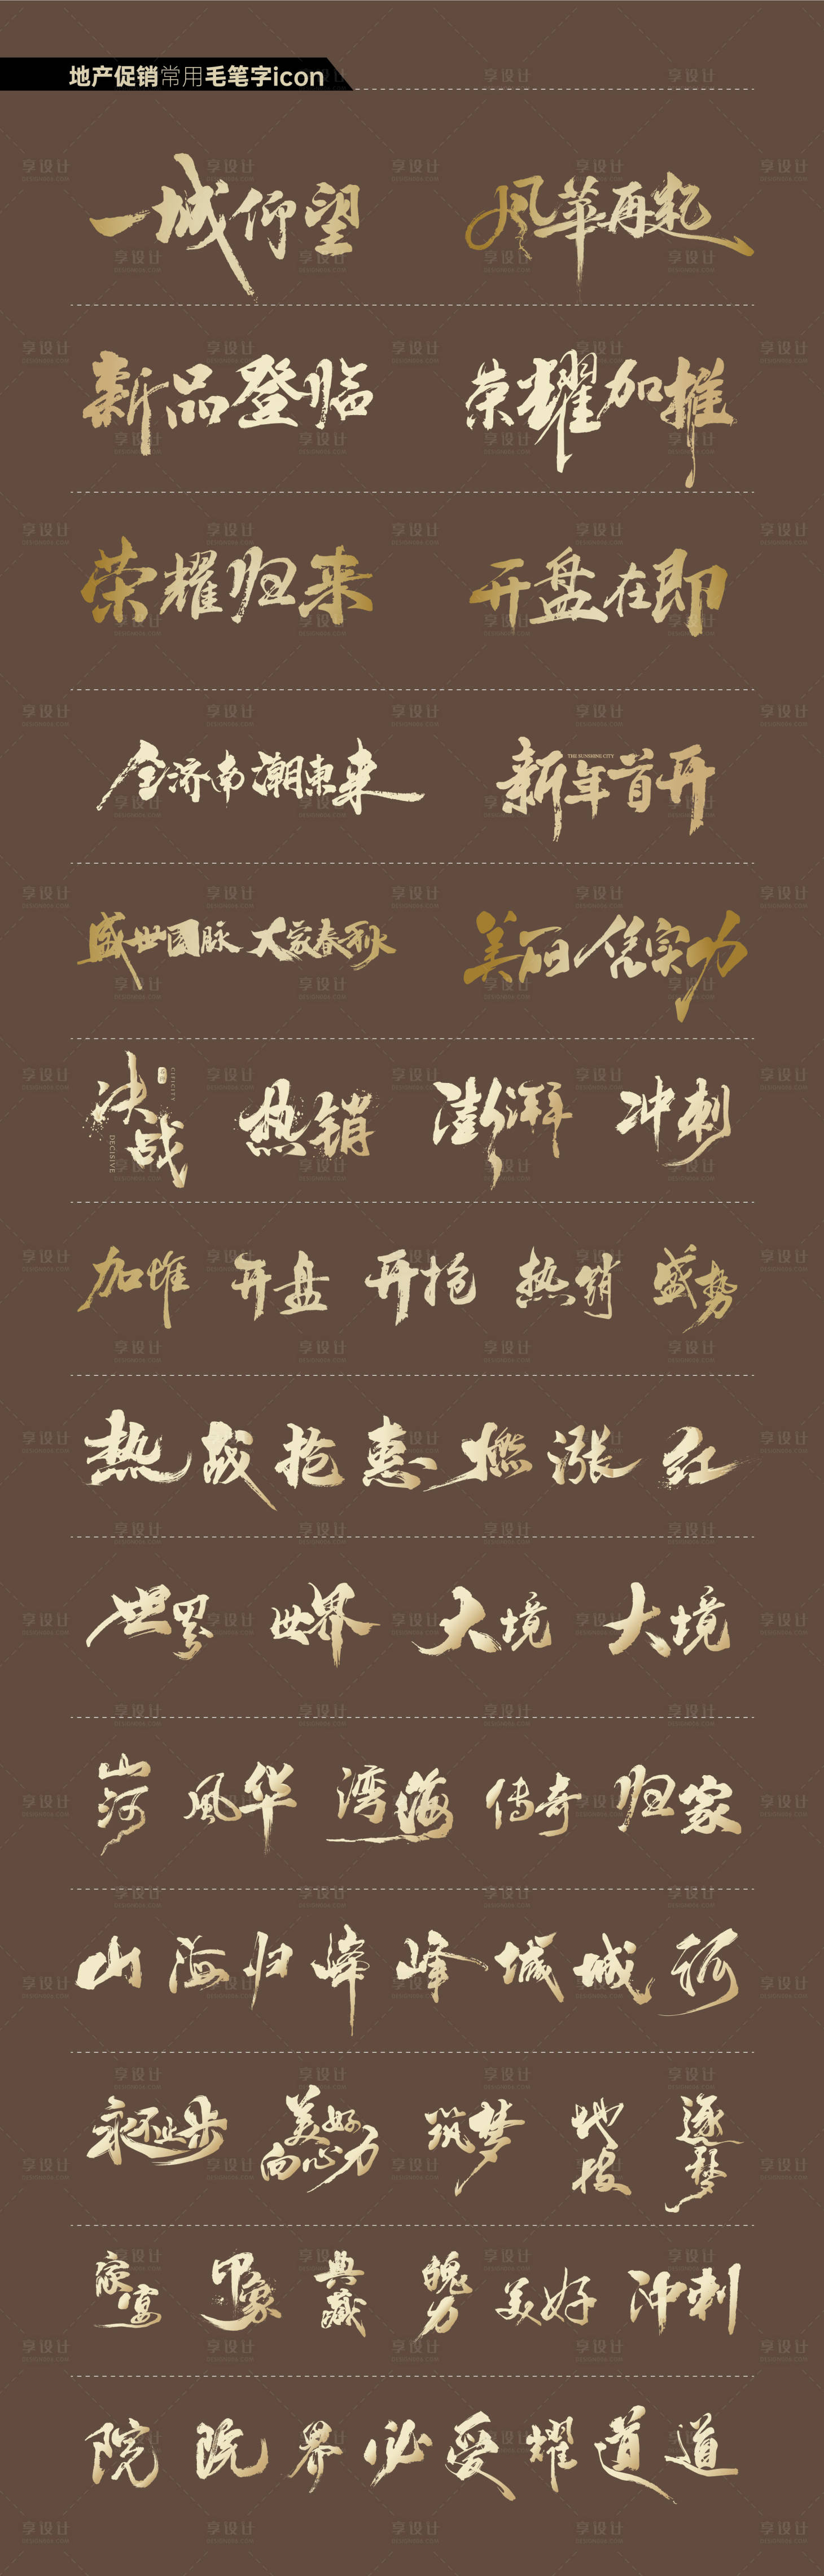 地产促销常用毛笔字icon
一城仰望 风华再起
新品登临 荣耀加推
荣耀归来 开盘在即
全济南 潮东来 新年首开
THE SUNSHINE CITY
盛世国脉 大家春秋 美丽凭实力
决战 热销 澎湃 冲刺
CIFICITY
DECISIVE
加推 开盘 开抢 热销 盛势
热 战 抢 惠 燃 涨 红
世界 世界 大境 大境
山河 風华 湾海 传奇 归家
山 海 归 峰 峰 城 城 河
永不止步 美好向心力 筑梦 地技 逐梦
家宴 印象 典藏 魄力 美好 冲刺
院 院 界 必 爱 耀 道 道
享设计
DESIGN006.COM